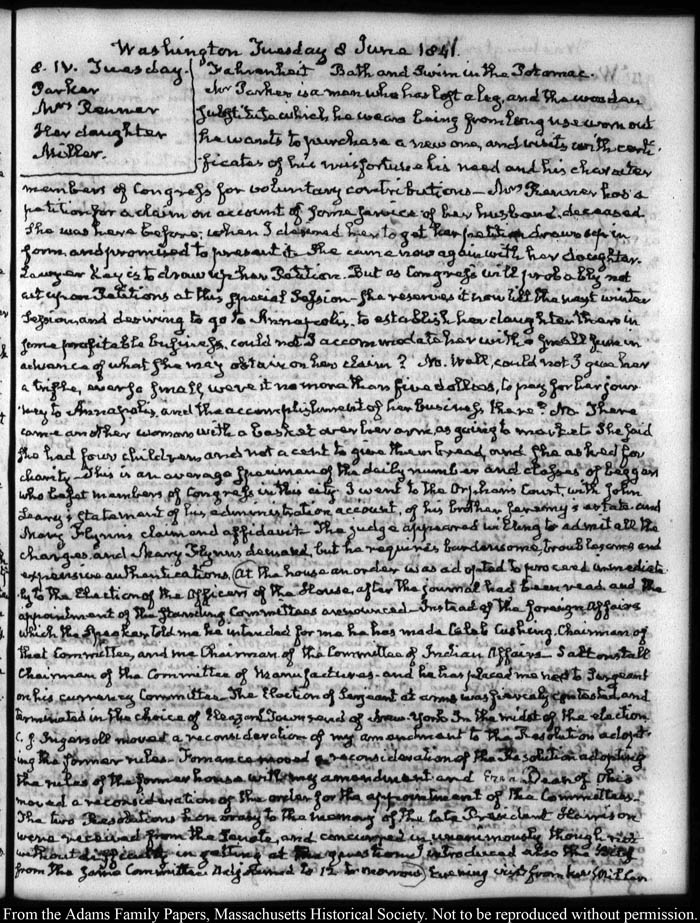 Washington Tuesday 8 June 1841.
8. IV. Tuesday.
Parker
Mrs Renner
Her daughter
Miller.
Fahrenheit Bath and Swim in the Potomac.
Mr Parker is a man who has lost a leg, and the wooden
substitute which he wears being from long use worn out
he wants to purchase a new one, and visits with certi-
ficates of his misfortune his need and his character
members of Congress for voluntary contributions— Mrs Renner has a
petition for a claim on account of some service of her husband, deceased
She was here before; when I desired her to get her petition drawn up in
form and promised to present it— She came now again with her daughter.
Lawyer Key is to draw up her Petition. But as Congress will probably not
act upon Petitions at this special Session— She reserves it now till the next winter
Session, and desiring to go to Annapolis, to establish her daughter there in
some profitable business, could not I accommodate her with a small sum in
advance of what she may obtain on her claim? No. Well, could not I give her
a trifle, ever so small, were it no more than five dollars, to pay for her jour-
ney to Annapolis, and the accomplishment of her business there? No. There
came another woman with a basket over her arm, as going to market She said
she had four children and not a cent to give them bread, and she asked for
charity— This is an average specimen of the daily number and classes of beggars
who beset members of Congress in this city. I went to the Orphan's Court, with John
Leary's Statement of his administration account, of his brother Jeremy's estate and
Mary Flynn's claim and affidavit— The judge appeared willing to admit all the
charges and Mary Flynn's demand, but he requires burdensome, troublesome and
expensive authentications. At the house an order was adopted to proceed immediate-
ly to the Election of the Officers of the House, after the journal had been read and the
appointment of the standing Committees announced— Instead of the foreign Affairs
which the Speaker told me he intended for me he has made Caleb Cushing, Chairman of
that Committee, and me Chairman of the Committee of Indian Affairs— Saltonstall
Chairman of the Committee of Manufactures— and he has placed me next to Sergeant
on his currency Committee. The Election of Sergeant at arms was fiercely contested, and
terminated in the choice of Eleazor Townsend of New-York In the midst of the election
C. J. Ingersoll moved a reconsideration of my amendment to the Resolution adopt-
ing the former rules— Fornance moved a reconsideration of the Resolution adopting
the rules of the former house with my amendment and Ezra Dean of Ohio
moved a reconsideration of the order for the appointment of the Committees—
The two Resolutions honorary to the memory of the late President Harrison
were received from the Senate, and concurred in unanimously though not
without difficulty in getting at the question I introduced also the Bill
from the same Committee Adjourned to 12 to morrow Evening visit from
From the Adams Family Papers, Massachusetts Historical Society. Not to be reproduced without permission.